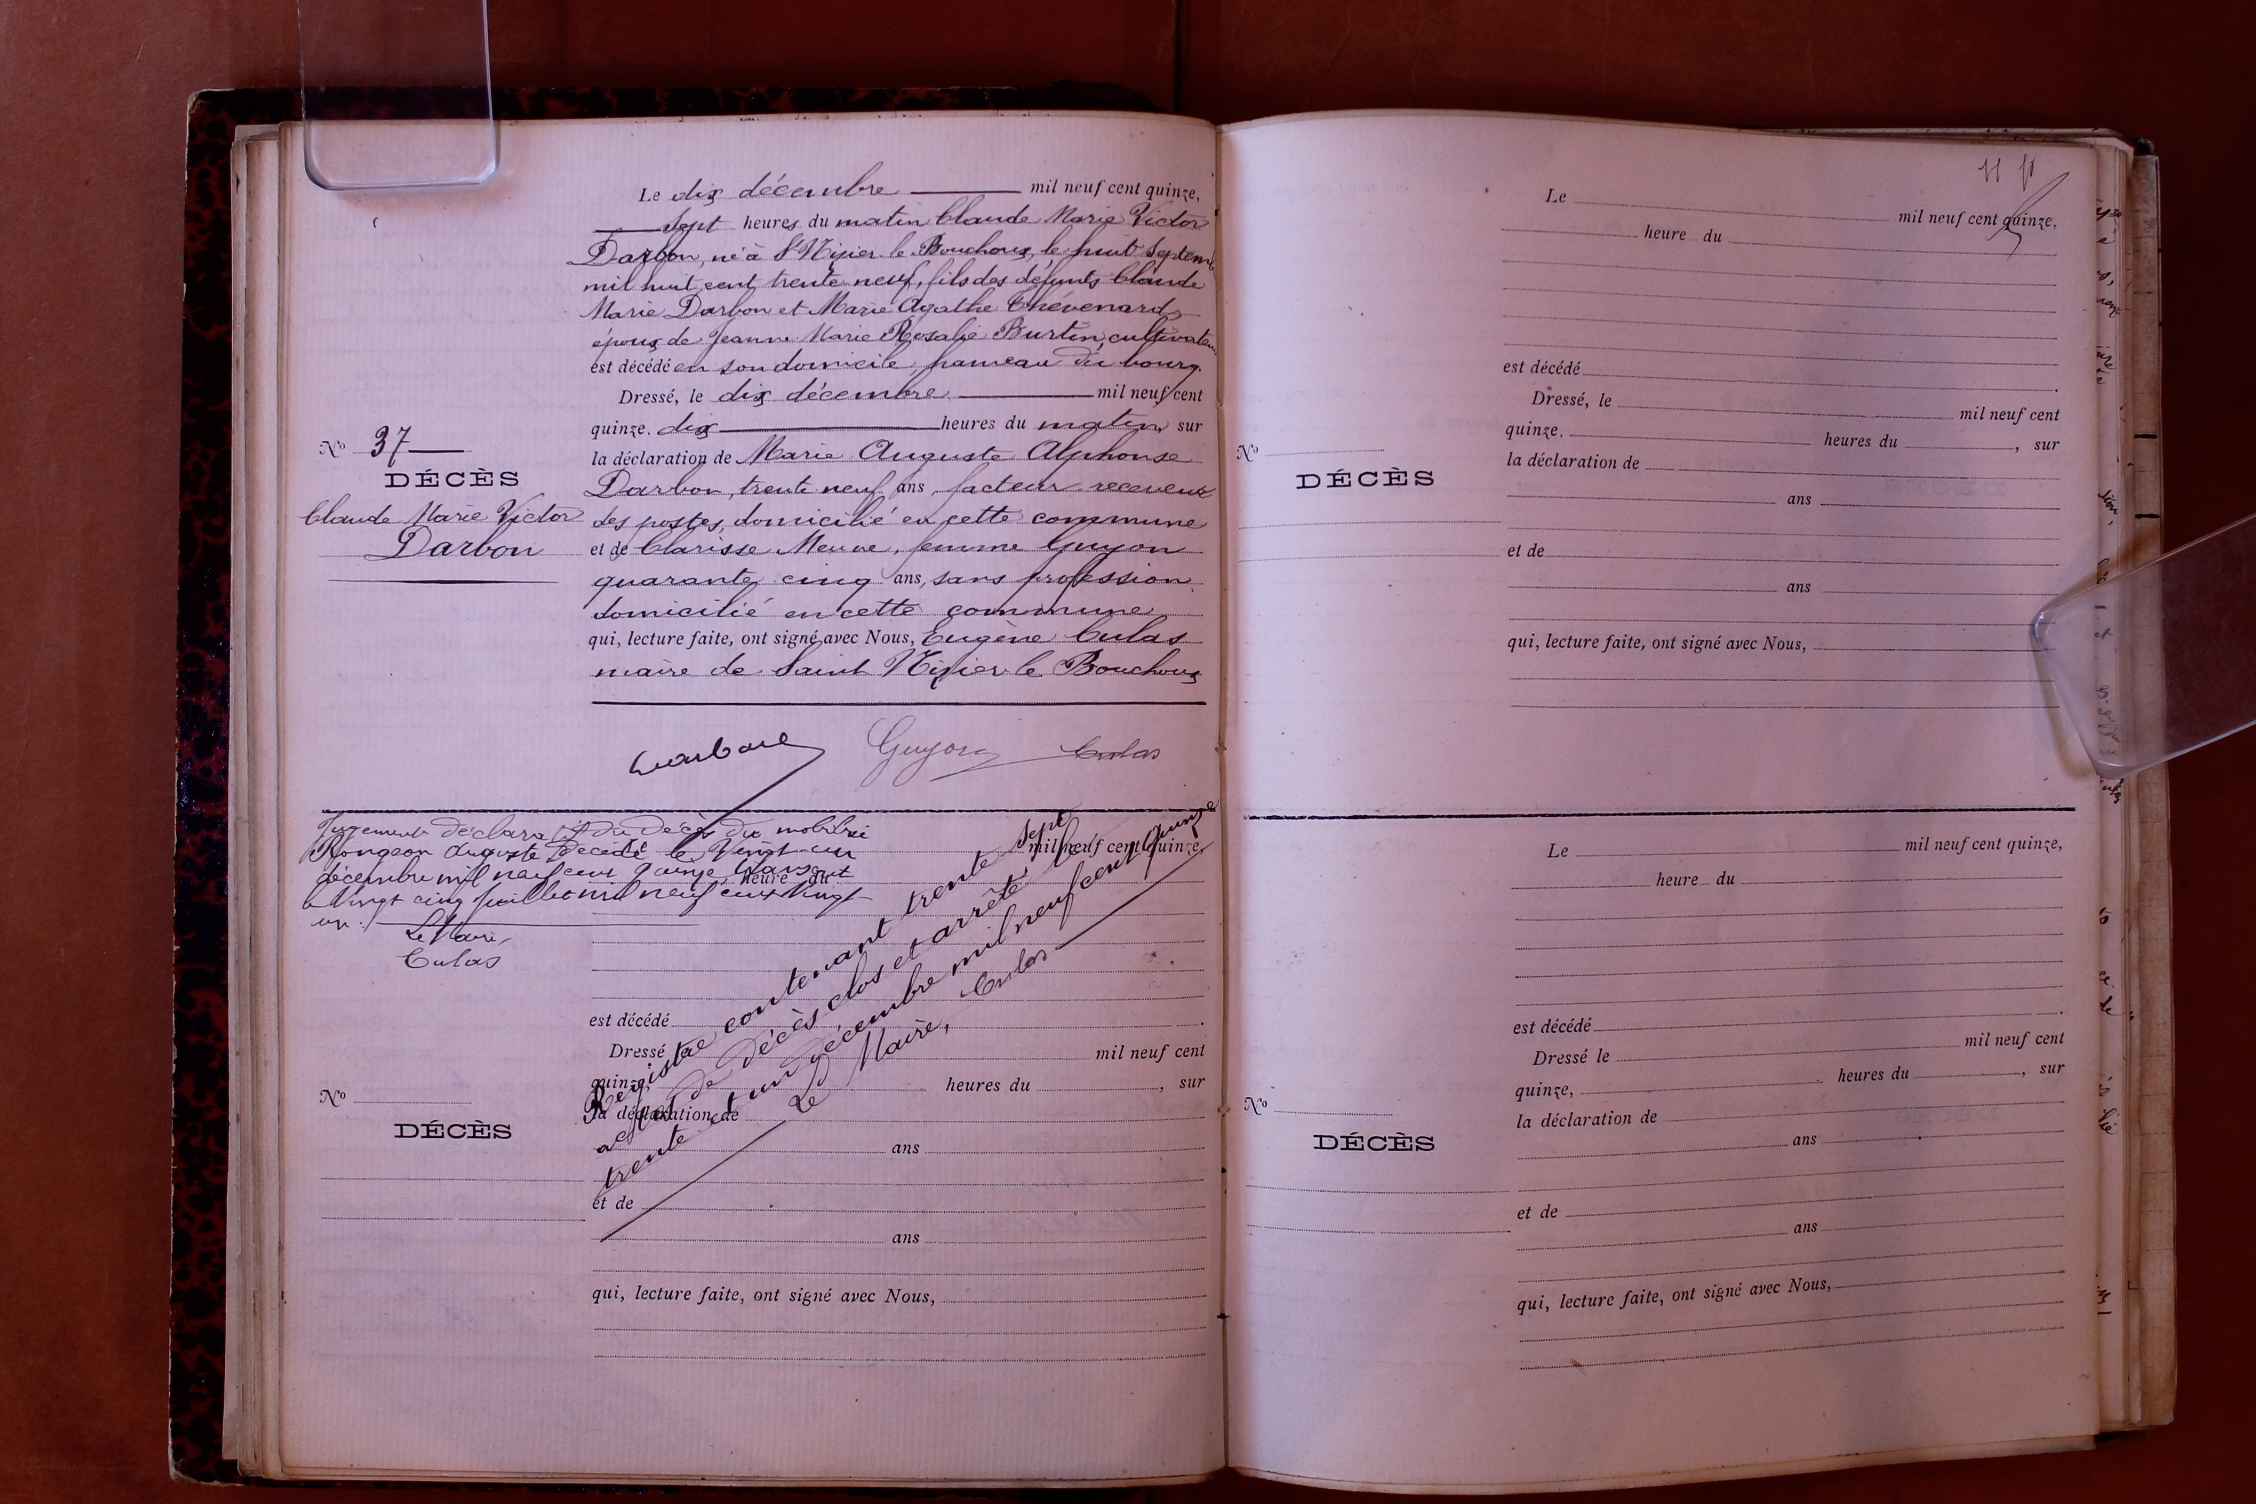 Le dix décembre mil neuf cent quinze,
sept heures du matin Claude Marie Victor
Darbon, né à St Nizier le Bouchoux, le huit septem
mil huit cent trente neuf, fils des défunts Claude
Marie Darbon et Marie Agathe Thévenard,
époux de Jeanne Marie Rosalie Burtin, cultivateur
est décédé en son domicile, hameau du bourg.
Dressé, le dix décembre mil neuf cent
quinze. dix heures du matin, sur
la déclaration de Marie Auguste Alphonse
Darbon, trente neuf ans, facteur receveur
des postes, domicilié en cette commune
et de Clarisse femme Guyon
quarante cinq ans, sans profession
domicilié en cette commune
qui, lecture faite, ont signé avec Nous, Eugène Culas
maire de Saint Nizier le Bouchoux
No 37
DÉCÈS
Claude Marie Victor
Darbon
Darbon Guyon Culas
Jugement déclaratif du décès du
Rongeon Auguste décédé le vingt un
décembre mil neuf cent quinze transcrit
le vingt cinq juillet mil neuf cent vingt
un.
Le Maire,
Culas
mil neuf cent quinze,
heure du
Registre contenant trente sept
actes de décès clos et arrêté le
trente et un décembre mil neuf cent quinze
Le Maire,
Culas
est décédé
Dressé, le mil neuf cent
quinze, heures du , sur
la déclaration de
ans
et de
ans
qui, lecture faite, ont signé avec Nous,
No
DÉCÈS
11
Le mil neuf cent quinze,
heure du
est décédé
Dressé, le mil neuf cent
quinze. heures du , sur
la déclaration de
ans
et de
ans
qui, lecture faite, ont signé avec Nous,
No
DÉCÈS
Le mil neuf cent quinze,
heure du
est décédé
Dressé le mil neuf cent
quinze, heures du , sur
la déclaration de
ans
et de
ans
qui, lecture faite, ont signé avec Nous,
No
DÉCÈS